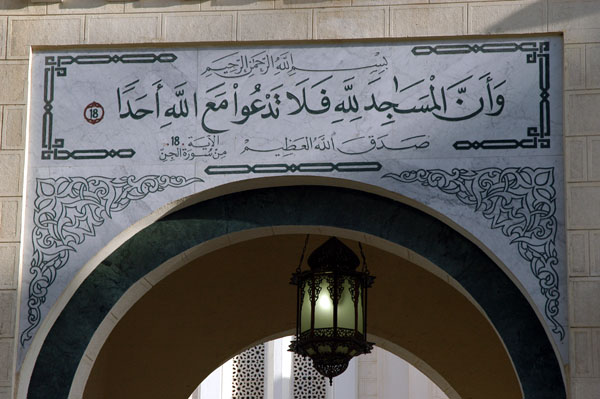 بسم الله الرحمن الرحيم
وَأَنَّ الْمَسَاجِدَ لِلَّهِ فَلَا تَدْعُوا۟ مَعَ اللَّهِ أَحَدًا 18
صدق الله العظيم
الآية .18.
من سورة الجن